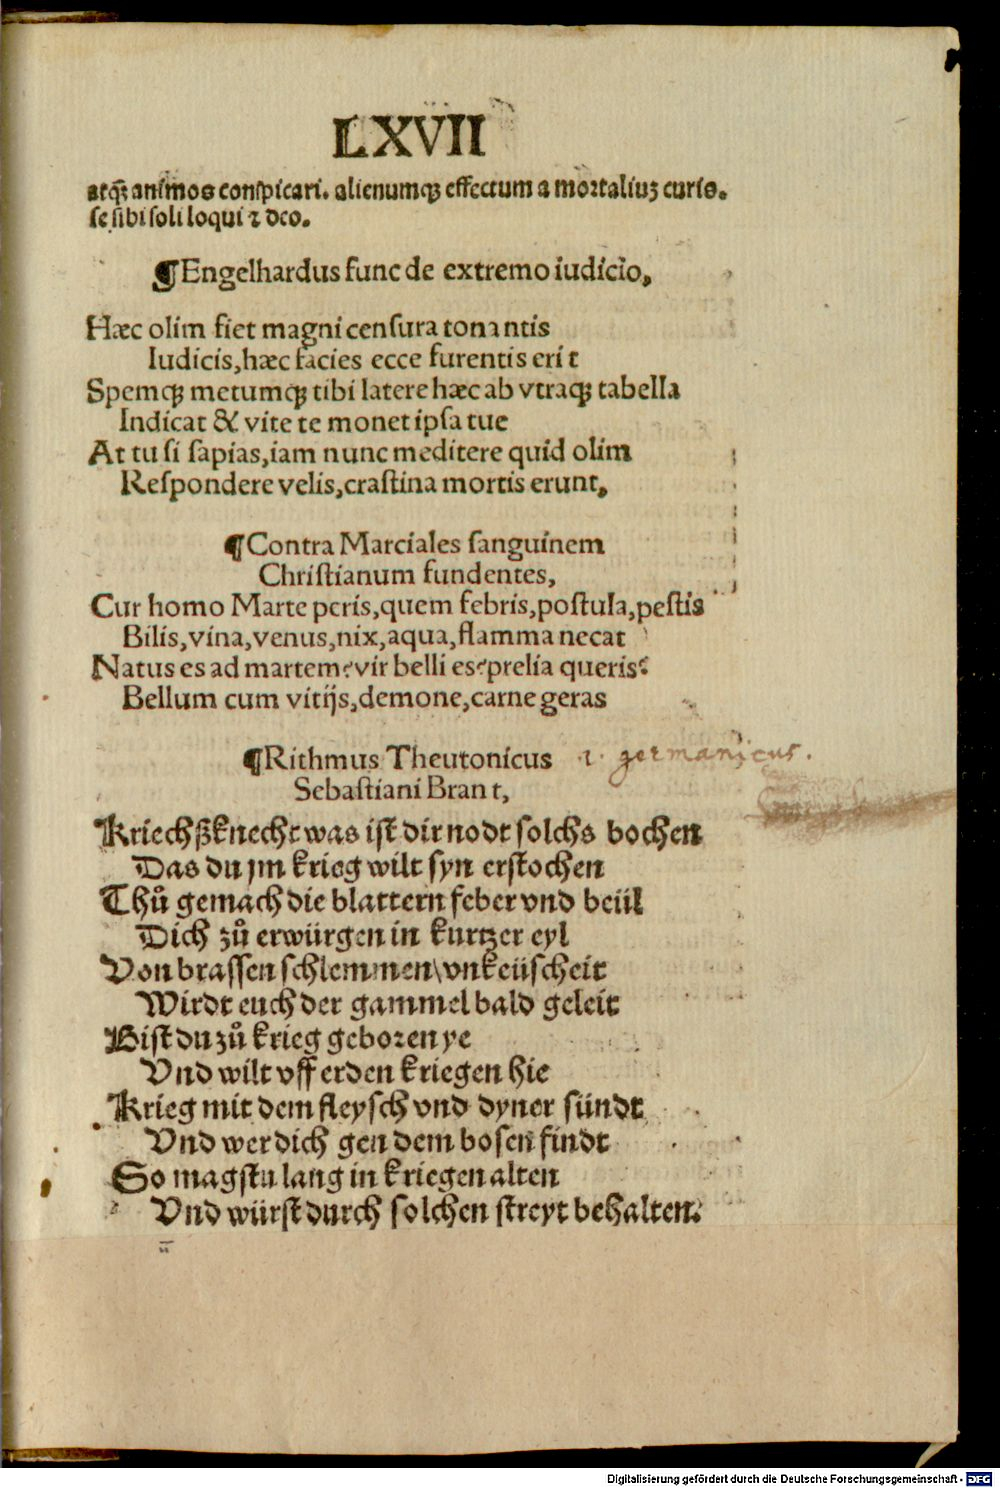 LXVII
atq̃ animos conspicari. alienumqꝫ effectum a mortaliuꝫ curis.
se sibi soli loqui ⁊ deo.
¶Engelhardus func de extremo iudicio,
Hæc olim fiet magni censura tonantis
Iudicis,hæc facies ecce furentis erit
Spemqꝫ metumqꝫ tibi latere hæc ab vtraqꝫ tabella
Indicat & vite te monet ipsa tue
At tu si sapias,iam nunc meditere quid olim
Respondere velis,crastina mortis erunt,
¶Contra Marciales sanguinem
Christianum fundentes,
Cur homo Marte peris,quem febris,postula,pestis
Bilis,vina,venus,nix,aqua,flamma necat
Natus es ad martem?vir belli es?prelia queris?
Bellum cum vitijs,demone,carne geras
¶Rithmus Theutonicus ·⁊· germanicus.
Sebastiani Brant,
Kriechßknecht was ist dir nodt solchs bochen
Das du jm krieg wilt syn erstochen
Thuͦ gemach die blattern feber vnd beül
Dich zuͦ erwürgen in kurtzer eyl
Von brassen schlemmen\vnkeüscheit
Wirdt euch der gammel bald geleit
Bist du zuͦ krieg geboren ye
Vnd wilt vff erden kriegen hie
Krieg mit dem fleysch vnd dyner sündt
Vnd wer dich gen dem bosen findt
So magstu lang in kriegen alten
Vnd würst durch solchen streyt behalten.
Digitalisierung gefördert durch die Deutsche Forschungsgemeinschaft - DFG